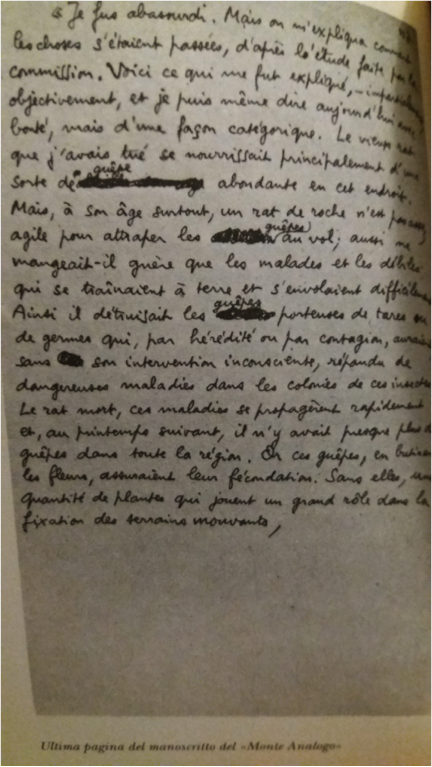 « Je fus abasourdi. Mais on m'expliqua comment
les choses s'étaient passées, d'après l'étude faite par la
commission. Voici ce qui me fut expliqué, – impartialement,
objectivement, et je puis même dire aujourd'hui avec
bonté, mais d'une façon catégorique. Le vieux rat
que j'avais tué se nourrissait principalement d'une
sorte de guêpe abondante en cet endroit.
Mais, à son âge surtout, un rat de roche n'est pas assez
agile pour attraper les guêpes au vol; aussi ne
mangeait-il guère que les malades et les débiles
qui se traînaient à terre et s'envolaient difficilement
Ainsi il détruisait les guêpes porteuses de tares ou
de germes qui, par hérédité ou par contagion, auraient
sans son intervention inconsciente, répandu de
dangereuses maladies dans les colonies de ces insectes
Le rat mort, ces maladies se propagèrent rapidement
et, au printemps suivant, il n'y avait presque plus de
guêpes dans toute la région. Or ces guêpes, en butinant
les fleurs, assuraient leur fécondation. Sans elles, une
quantité de plantes qui jouent un grand rôle dans la
fixation des terrains mouvants,
Ultima pagina del manoscritto del «Monte Analogo»